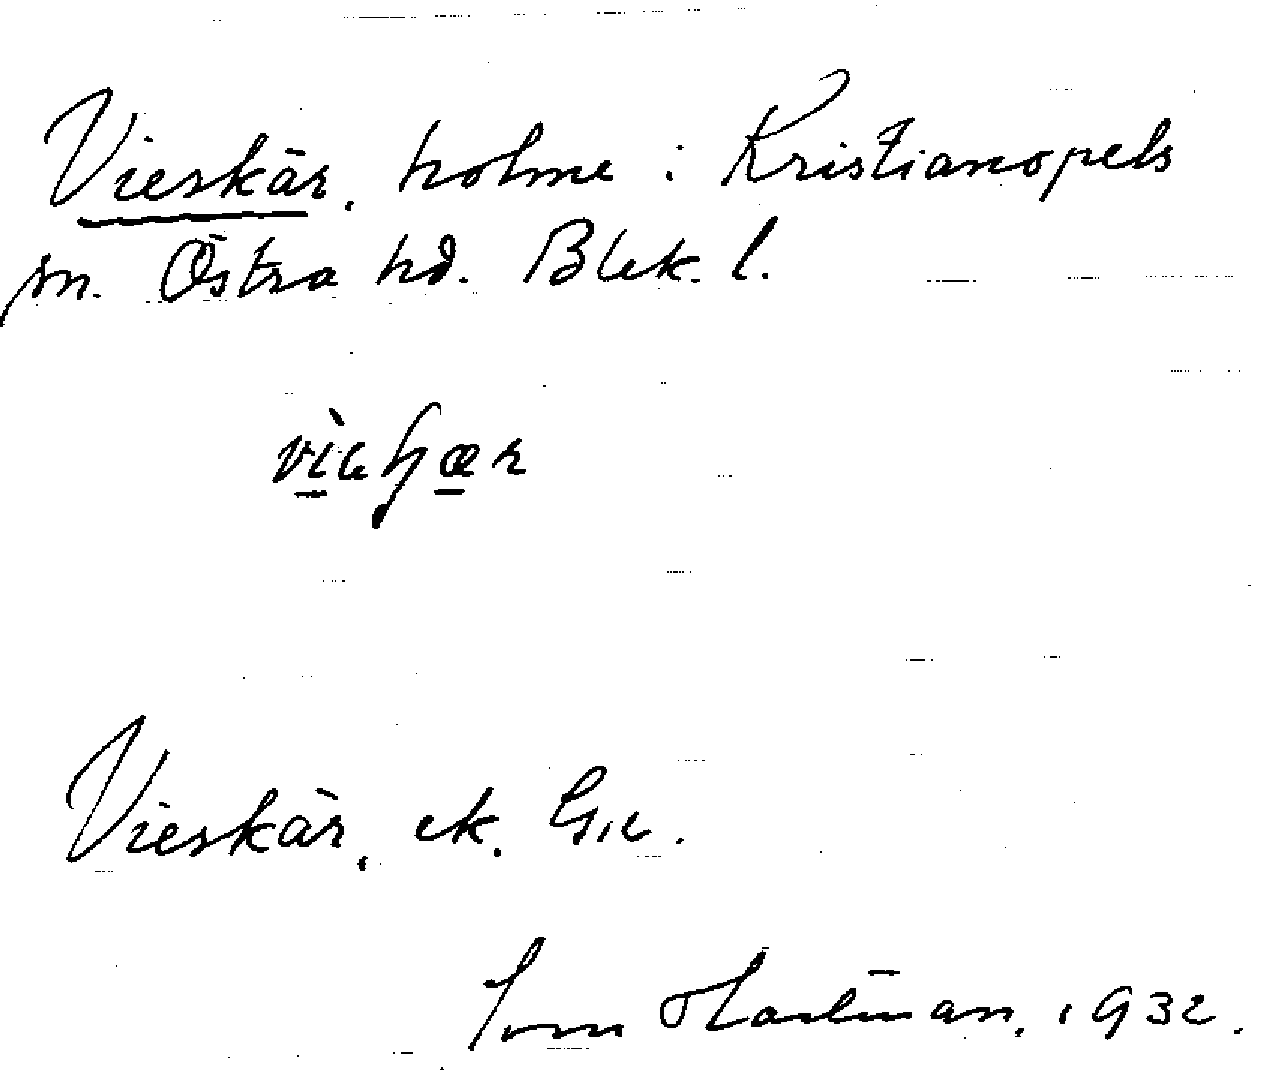 Vieskär, holme i Kristianopels
sn. Östra hd. Blek. l.
Vieskär, ek.
Hartman. 1932.